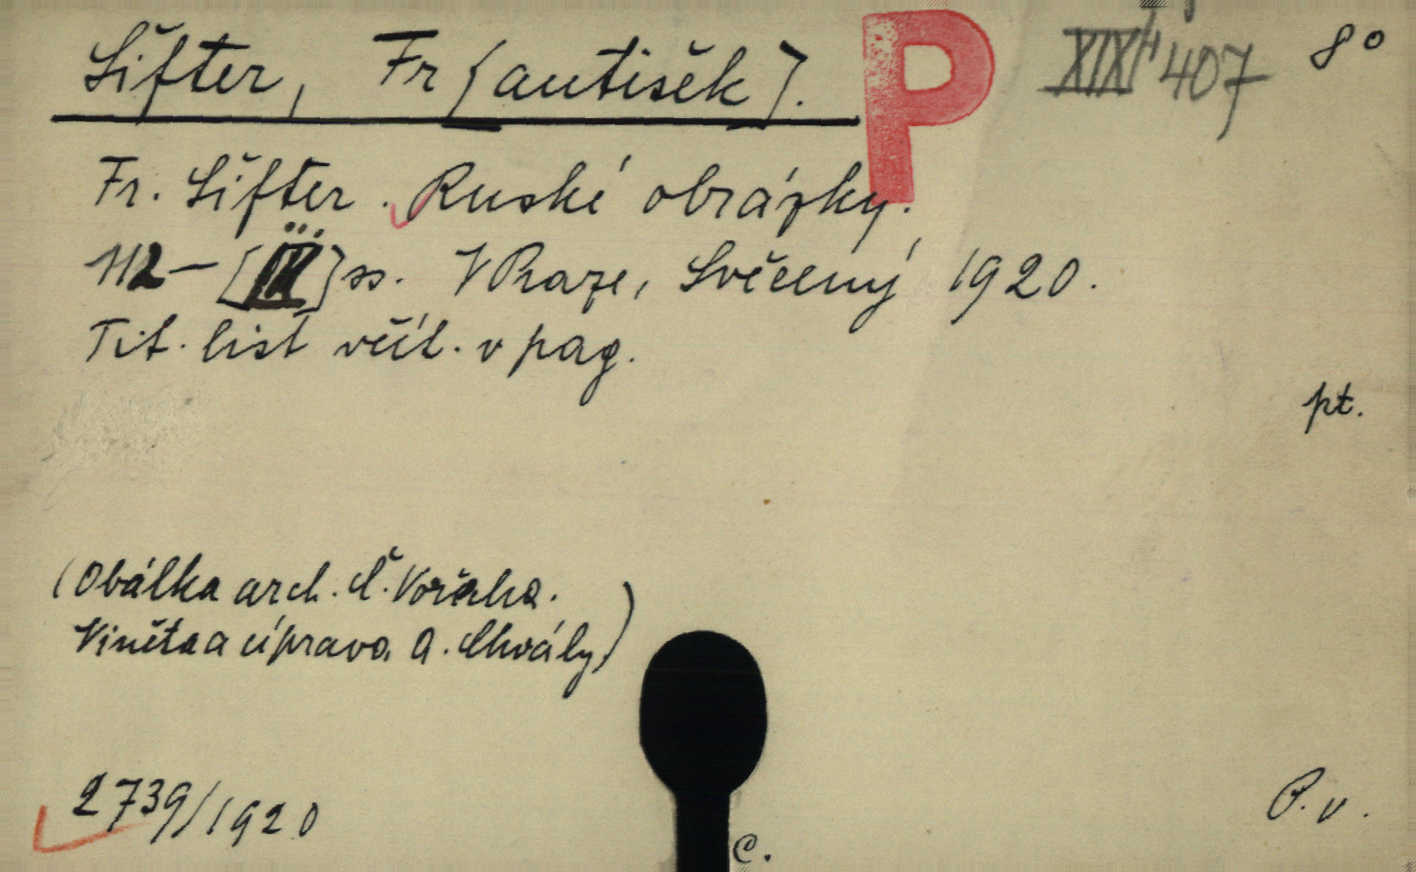 Šifter, Fr[antišek].
P
XIX H 407
8°
Fr. Šifter. Ruské obrázky.
112-[III] ss. V Praze, Svěcený 1920.
Tit. list včít. v pag.
pt.
(Obálka arch. Č. Vořecha.
Viněta a úprava A. Chvály)
2739/1920
P. v.
C.